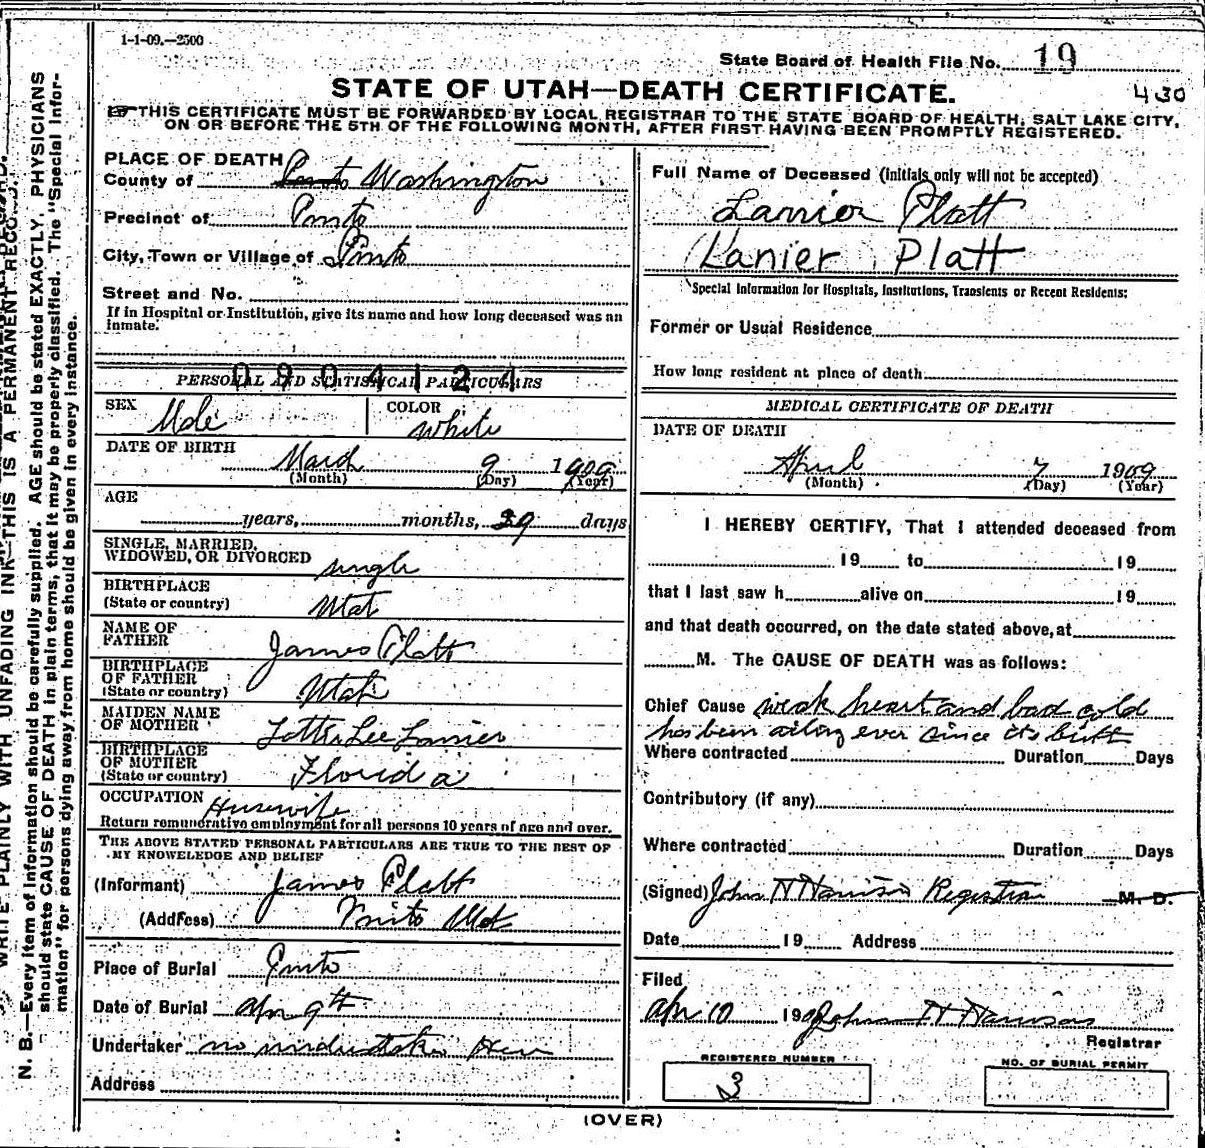 1-1-09.—2500
State Board of Health File No. 19
430
STATE OF UTAH—DEATH CERTIFICATE.
THIS CERTIFICATE MUST BE FORWARDED BY LOCAL REGISTRAR TO THE STATE BOARD OF HEALTH, SALT LAKE CITY,
ON OR BEFORE THE 5TH OF THE FOLLOWING MONTH, AFTER FIRST HAVING BEEN PROMPTLY REGISTERED.
WRITE PLAINLY WITH UNFADING INK—THIS IS A PERMANENT RECORD.
N. B.—Every item of information should be carefully supplied. AGE should be stated EXACTLY. PHYSICIANS
should state CAUSE OF DEATH in plain terms, that it may be properly classified. The "Special Infor-
mation" for persons dying away from home should be given in every instance.
PLACE OF DEATH
County of Pinto Washington
Precinct of Pinto
City, Town or Village of Pinto
Street and No.
If in Hospital or Institution, give its name and how long deceased was an
inmate.
0904124
PERSONAL AND STATISTICAL PARTICULARS
SEX Male COLOR White
DATE OF BIRTH March 9 1909
(Month) (Day) (Year)
AGE
years, months, 29 days
SINGLE, MARRIED,
WIDOWED, OR DIVORCED single
BIRTHPLACE
(State or country) Utah
NAME OF
FATHER James Platt
BIRTHPLACE
OF FATHER
(State or country) Utah
MAIDEN NAME
OF MOTHER Lottie Lee Lanier
BIRTHPLACE
OF MOTHER
(State or country) Florida
OCCUPATION Husewife
Return remunerative employment for all persons 10 years of age and over.
THE ABOVE STATED PERSONAL PARTICULARS ARE TRUE TO THE BEST OF
MY KNOWLEDGE AND BELIEF
(Informant) James Platt
(Address) Pinto Utah
Place of Burial Pinto
Date of Burial Apr 9th
Undertaker no undertaker
Address
Full Name of Deceased (initials only will not be accepted)
Lanier Platt
(Lanier Platt
Special Information for Hospitals, Institutions, Transients or Recent Residents:
Former or Usual Residence
How long resident at place of death
MEDICAL CERTIFICATE OF DEATH
DATE OF DEATH
April 7 1909
(Month) (Day) (Year)
I HEREBY CERTIFY, That I attended deceased from
19 to 19
that I last saw h alive on 19
and that death occurred, on the date stated above, at
M. The CAUSE OF DEATH was as follows:
Chief Cause weak heart and bad cold
has been ailing ever since its birth
Where contracted Duration Days
Contributory (if any)
Where contracted Duration Days
(Signed) John H Harrison Registrar M. D.
Date 19 Address
Filed
Apr 10 1909 John H Harrison
Registrar
REGISTERED NUMBER
3
NO. OF BURIAL PERMIT
(OVER)